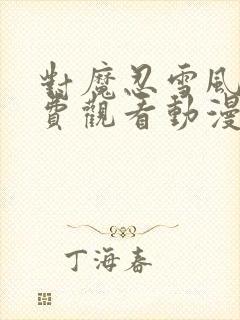 對魔忍雪風
費觀看動漫
丁海春